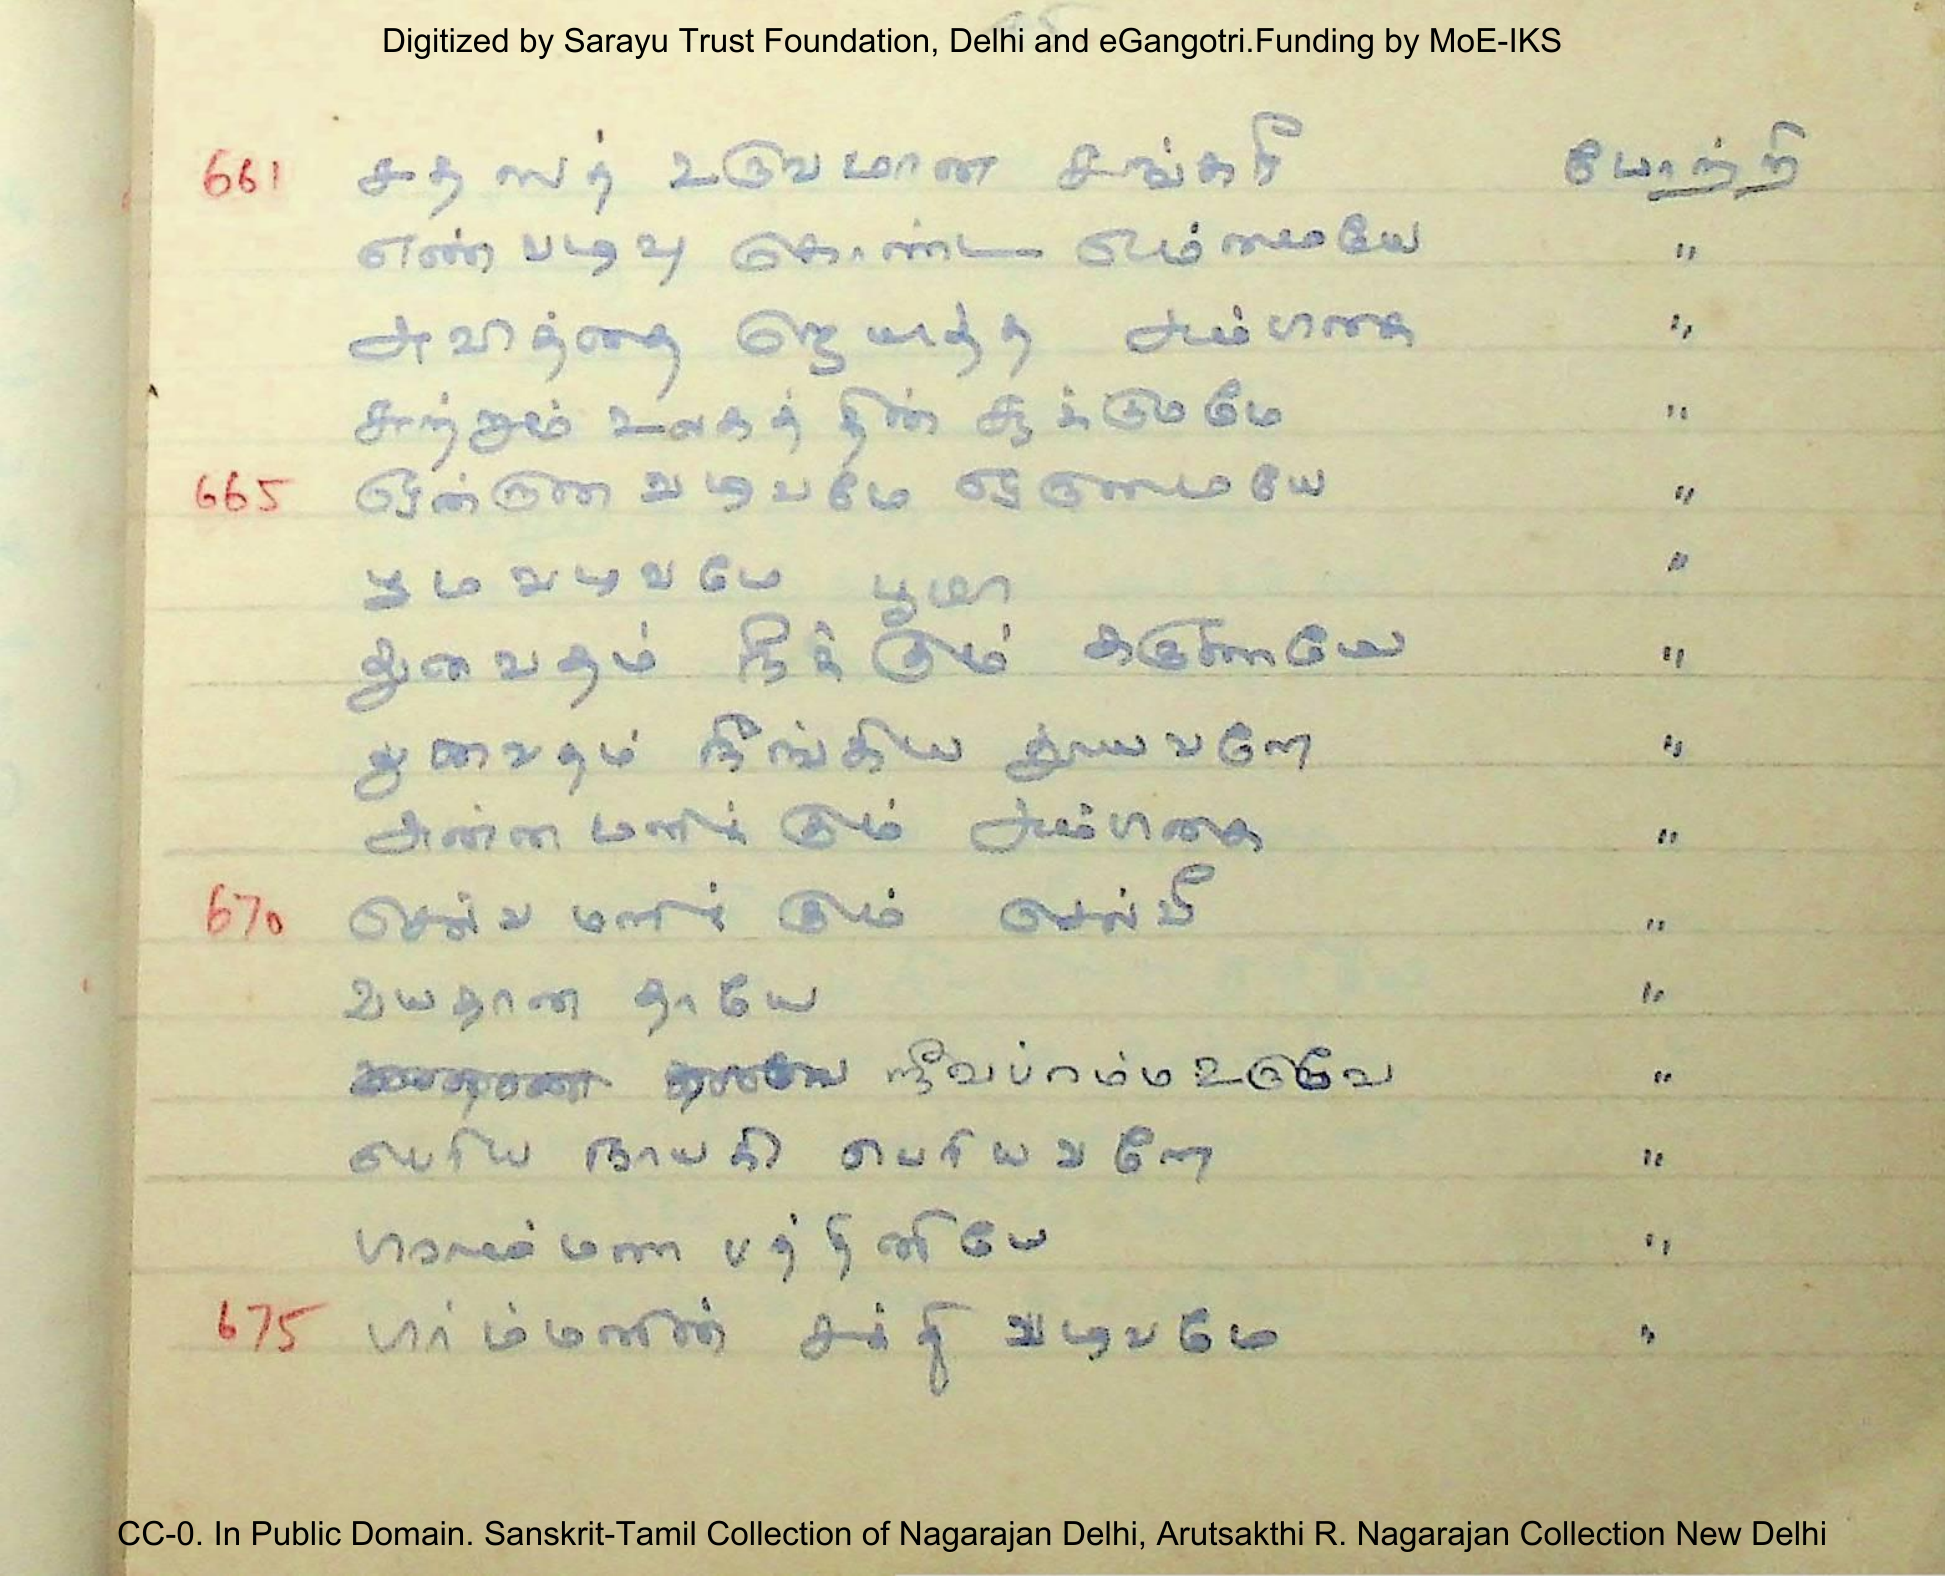 Digitized by Sarayu Trust Foundation, Delhi and eGangotri.Funding by MoE-IKS
661 சத ஸத் உருவமான சங்கரி போற்றி
எண் வடிவு கொண்ட எம்மையே "
அவித்தை ஜெயித்த அம்பிகை "
சுற்றும் உலகத் தின் சூக்குமமே "
665 வடிவமே "
வடிவமே பூமா "
துவைதம் நீக்கும் கருணையே "
துவைதம் நீங்கிய தூயவளே "
அன்ன மளிக்கும் அம்பிகை "
670 செல்வ மளிக்கும் செல்வீ "
உயதான தாயே "
ஜீவப்ரம்மஉருவே "
பெரிய நாயகி பெரியவளே "
பிராம்மண பத்தினியே "
675 பிரம்மனின் சக்தி வடிவமே "
CC-0. In Public Domain. Sanskrit-Tamil Collection of Nagarajan Delhi, Arutsakthi R. Nagarajan Collection New Delhi